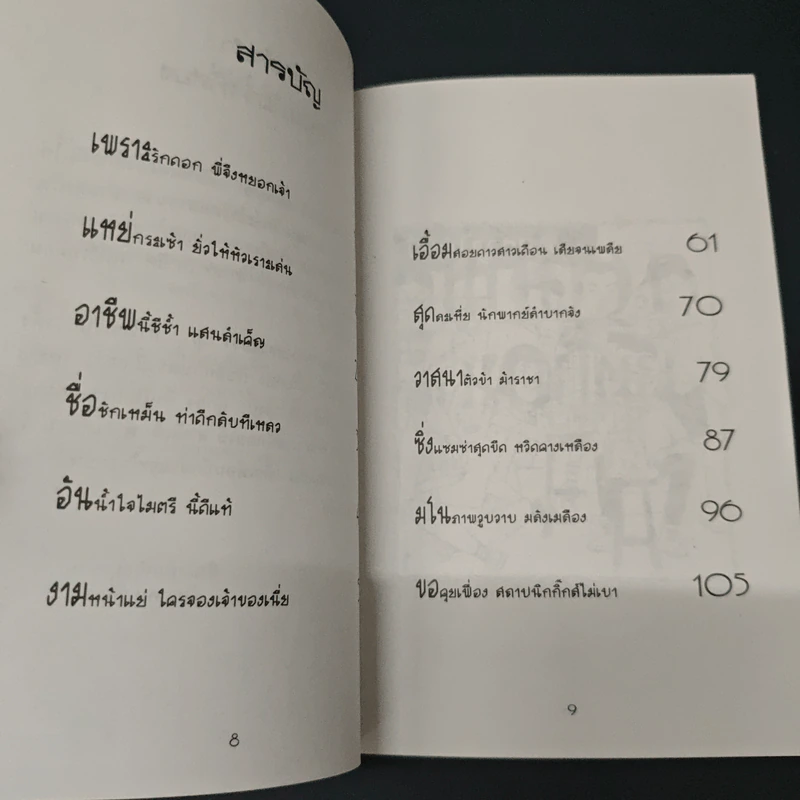 สารบัญ
เพราะริกดอก พี่จึงหยอกเจ้า
แหย่กระเซ้า ยั่วให้หัวเราะเล่น
อาชีพนี้ชีช้ำ แสนลำเค็ญ
ชื่อชิกเหม็น ท่าถึกดิบทีเหลว
อันน้ำใจไมตรี นี้ดีแท้
งามหน้าแย่ ใครจองเจ้าของเนี่ย
8
เอื้อมสอยดาวสาวเดือน เลียจนเพลีย 61
สุดละเหี่ย นักพากย์ลำบากจัง 70
วาสนาตัวข้า ม้าราชา 79
ซิ่งแซมซ่าสุดขีด หวีดคางเหลือง 87
มโนภาพวูบวาบ มลังเมลือง 96
ขอคุยเฟื่อง สถาบนึกกิ๊กก์ไม่เบา 105
9